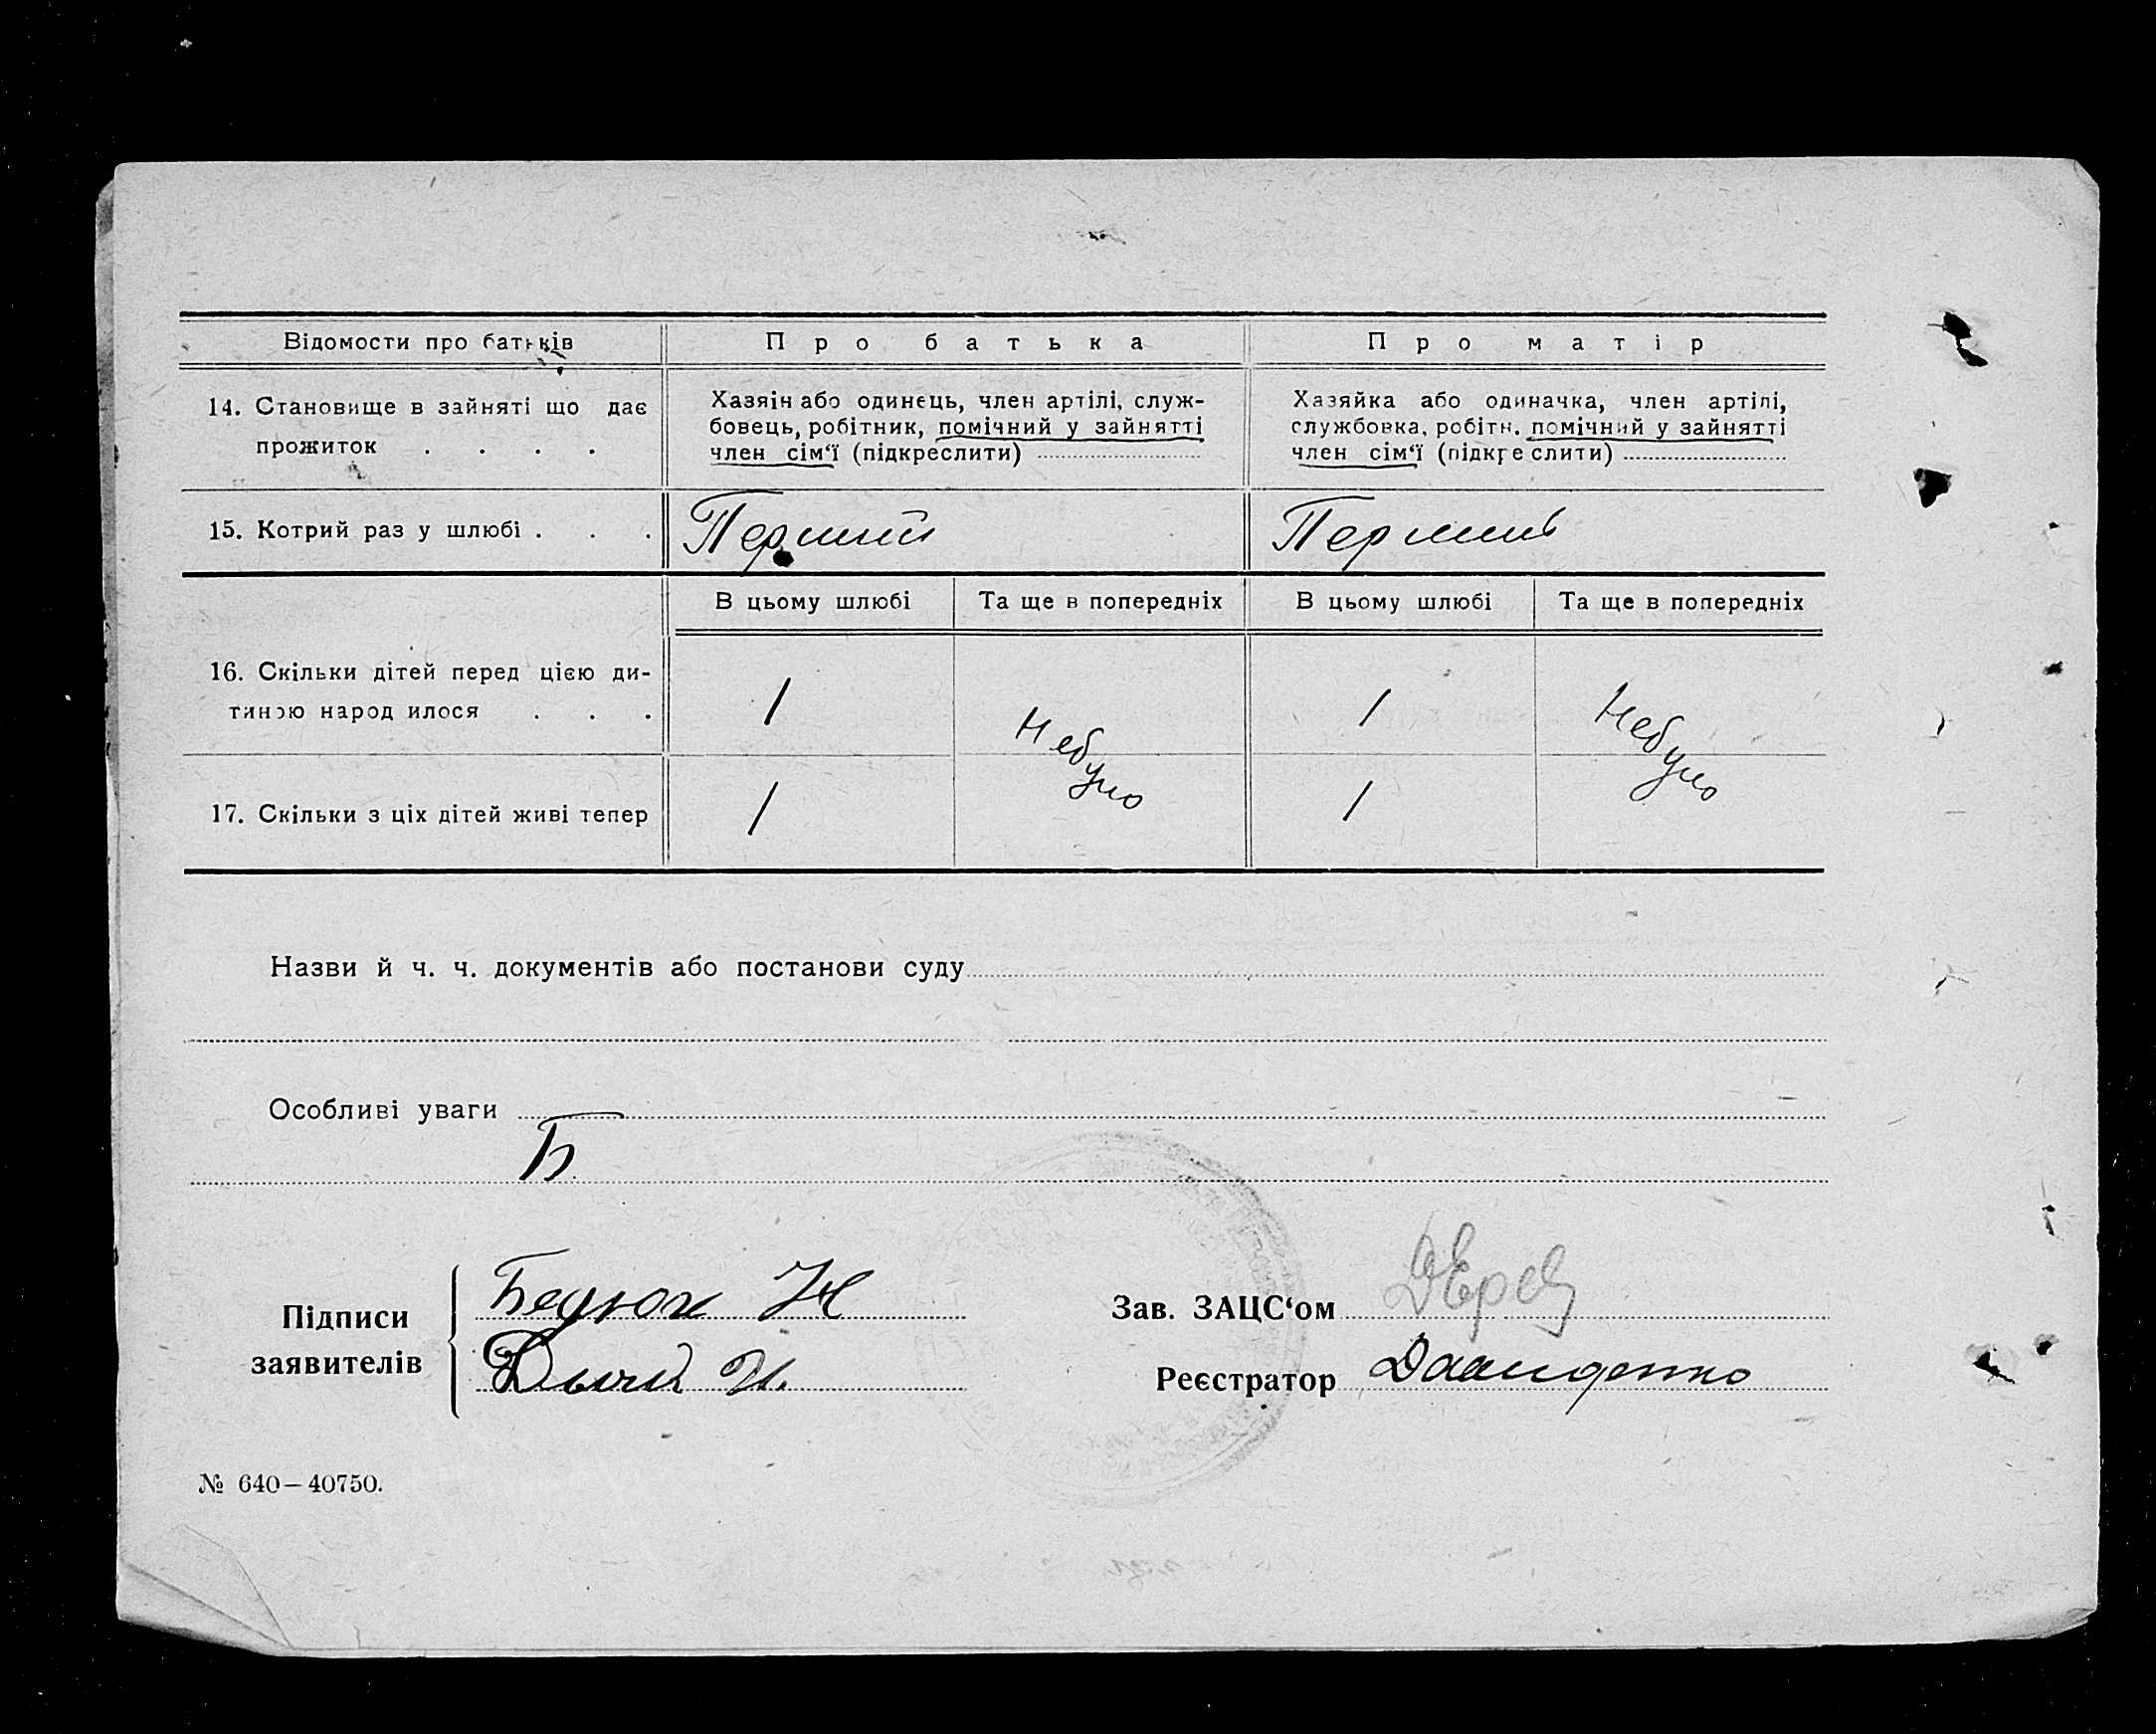 Відомости про батьків
Про батька
Про матір
14. Становище в зайняті що дає
прожиток . . . .
Хазяін або одинець, член артілі, служ-
бовець, робітник, помічний у зайнятті
член сім‘ї (підкреслити)
Хазяйка або одиначка, член артілі,
службовка, робітн. помічний у зайнятті
член сім‘ї (підкреслити)
15. Котрий раз у шлюбі . . .
Перший
Перший
В цьому шлюбі
Та ще в попередніх
В цьому шлюбі
Та ще в попередніх
16. Скільки дітей перед цією ди-
тиною народилося . . .
1
Небуло
1
Небуло
17. Скільки з ціх дітей живі тепер
1
1
Назви й ч. ч. документів або постанови суду
Особливі уваги
Б
Підписи
заявителів
Н
И.
Зав. ЗАЦС‘ом
Реєстратор
№ 640–40750.